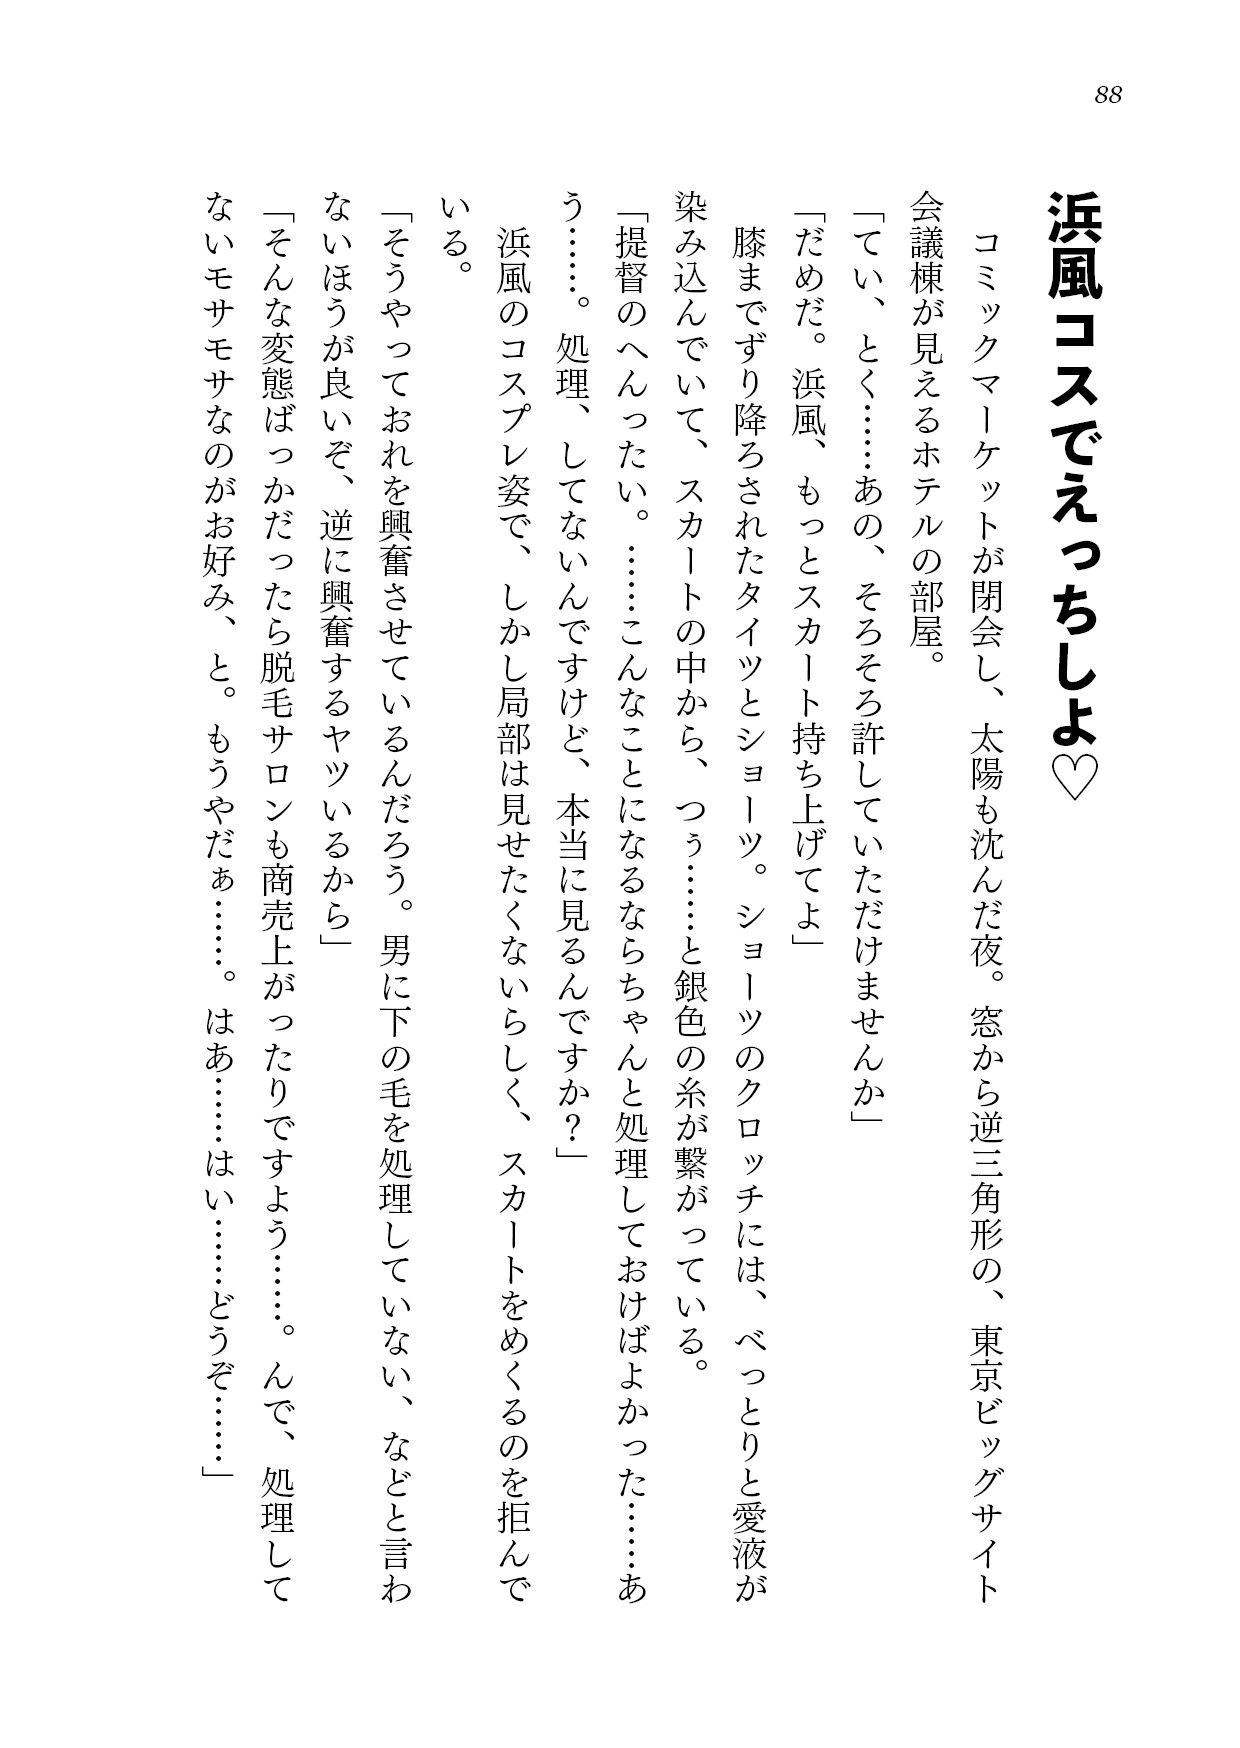 88
浜風コスでえっちしよ♡
コミックマーケットが閉会し、太陽も沈んだ夜。窓から逆三角形の、東京ビッグサイト
会議棟が見えるホテルの部屋。
「てい、とく……あの、そろそろ許していただけませんか」
「だめだ。浜風、もっとスカート持ち上げてよ」
膝までずり降ろされたタイツとショーツ。ショーツのクロッチには、べっとりと愛液が
染み込んでいて、スカートの中から、つぅ……と銀色の糸が繋がっている。
「提督のへんったい。……こんなことになるならちゃんと処理しておけばよかった……あ
う……。処理、してないんですけど、本当に見るんですか？」
浜風のコスプレ姿で、しかし局部は見せたくないらしく、スカートをめくるのを拒んで
いる。
「そうやっておれを興奮させているんだろう。男に下の毛を処理していない、などと言わ
ないほうが良いぞ、逆に興奮するヤツいるから」
「そんな変態ばっかだったら脱毛サロンも商売上がったりですよう……。んで、処理して
ないモサモサなのがお好み、と。もうやだぁ……。はあ……はい……どうぞ……」